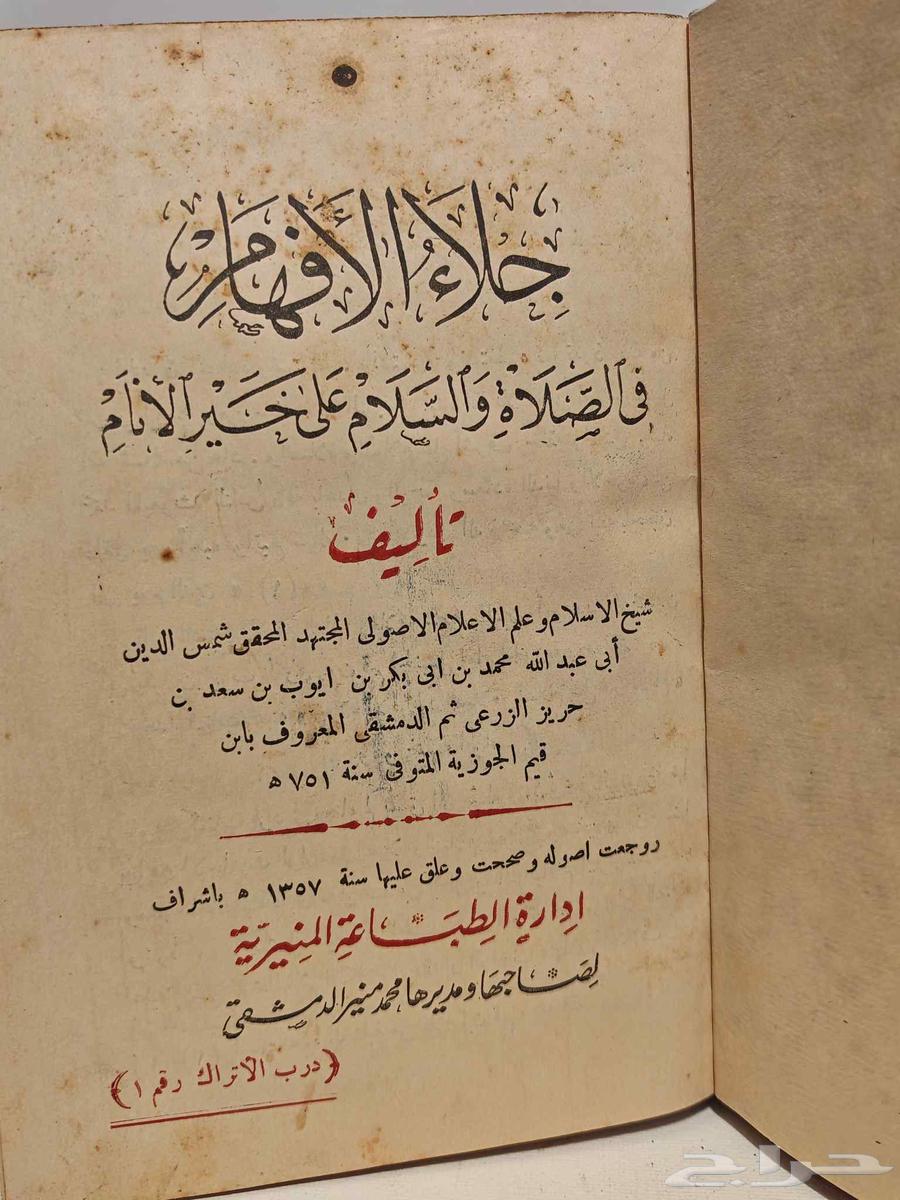 جِلَاءُ الأَفْهَامِ
فى الصَّلَاةِ وَالسَّلَامِ عَلَى خَيْرِ الأَنَامِ
تأليف
شيخ الاسلام وعلم الاعلام الاصولى المجتهد المحقق شمس الدين
أبى عبد الله محمد بن ابى بكر بن ايوب بن سعد بن
حريز الزرعى ثم الدمشقى المعروف بابن
قيم الجوزية المتوفى سنة ٧٥١ ه
روجعت اصوله وصححت وعلق عليها سنة ١٣٥٧ ه باشراف
إدارة الطِبَاعةِ المنِيريّة
لصَاحبها ومديرها محمد منير الدمشقى
﴿درب الأتراك رقم ١﴾
حراج